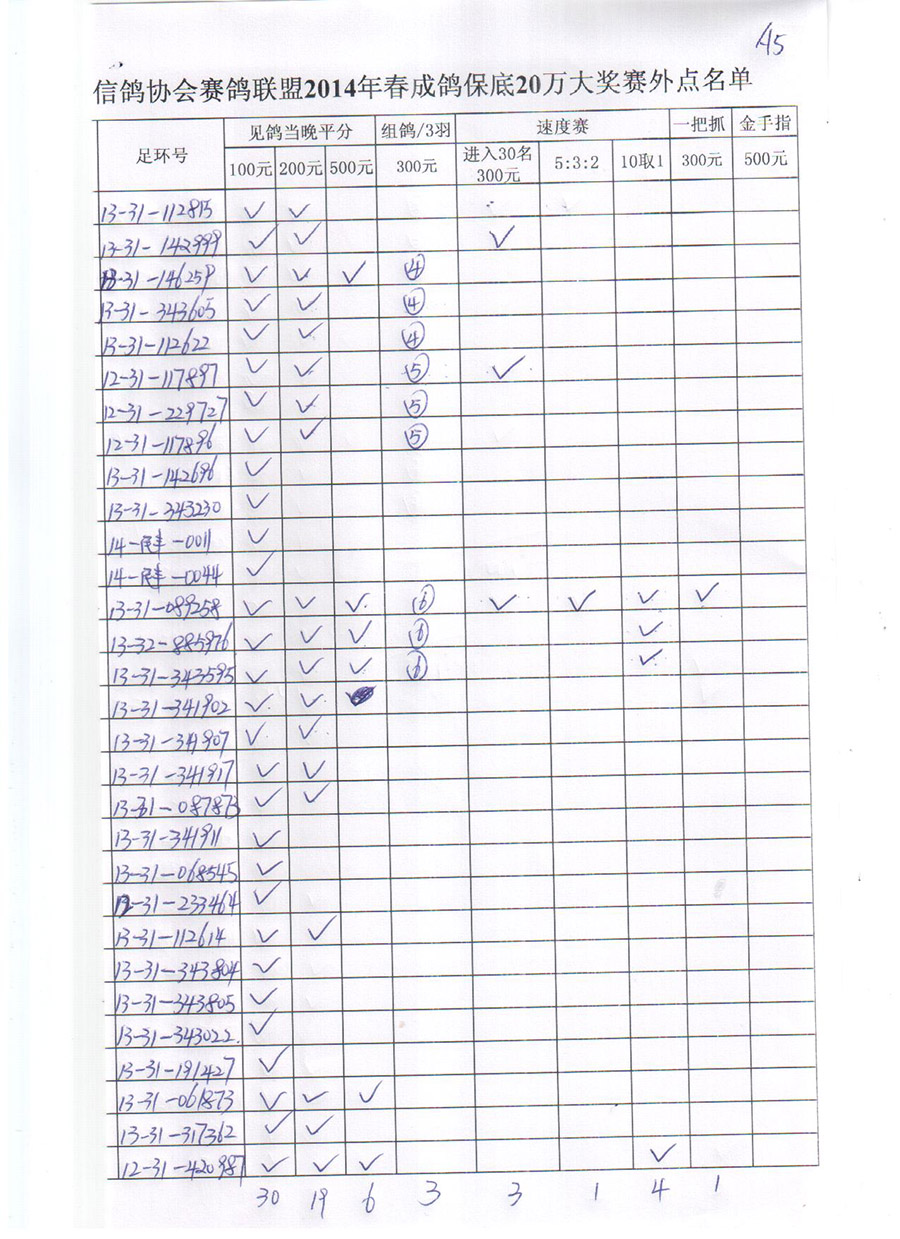 A5
信鸽协会赛鸽联盟2014年春成鸽保底20万大奖赛外点名单
足环号 见鸽当晚平分 组鸽/3羽 速度赛 一把抓 金手指
100元 200元 500元 300元 进入30名 300元 5:3:2 10取1 300元 500元
13-31-112815 ✓ ✓
13-31-142999 ✓ ✓ ✓
13-31-146259 ✓ ✓ ✓ ④
13-31-343605 ✓ ✓ ④
13-31-112622 ✓ ✓ ④
12-31-117897 ✓ ✓ ⑤ ✓
12-31-229727 ✓ ✓ ⑤
12-31-117896 ✓ ✓ ⑤
13-31-142696 ✓
13-31-343230 ✓
14- -0011 ✓
14- -0044 ✓
13-31-089258 ✓ ✓ ✓ ⑥ ✓ ✓ ✓ ✓
13-32-885976 ✓ ✓ ✓ ⑥ ✓
13-31-343595 ✓ ✓ ✓ ⑥ ✓
13-31-341902 ✓ ✓
13-31-341907 ✓ ✓
13-31-341917 ✓ ✓
13-31-087873 ✓ ✓
13-31-341911 ✓
13-31-068545 ✓
12-31-233464 ✓
13-31-112614 ✓ ✓
13-31-343804 ✓
13-31-343805 ✓
13-31-343022 ✓
13-31-191427 ✓
13-31-061873 ✓ ✓ ✓
13-31-317362 ✓ ✓
12-31-420987 ✓ ✓ ✓ ✓
30 19 6 3 3 1 4 1